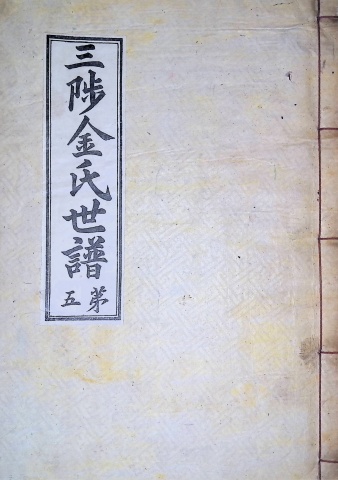 三陟金氏世譜
第五